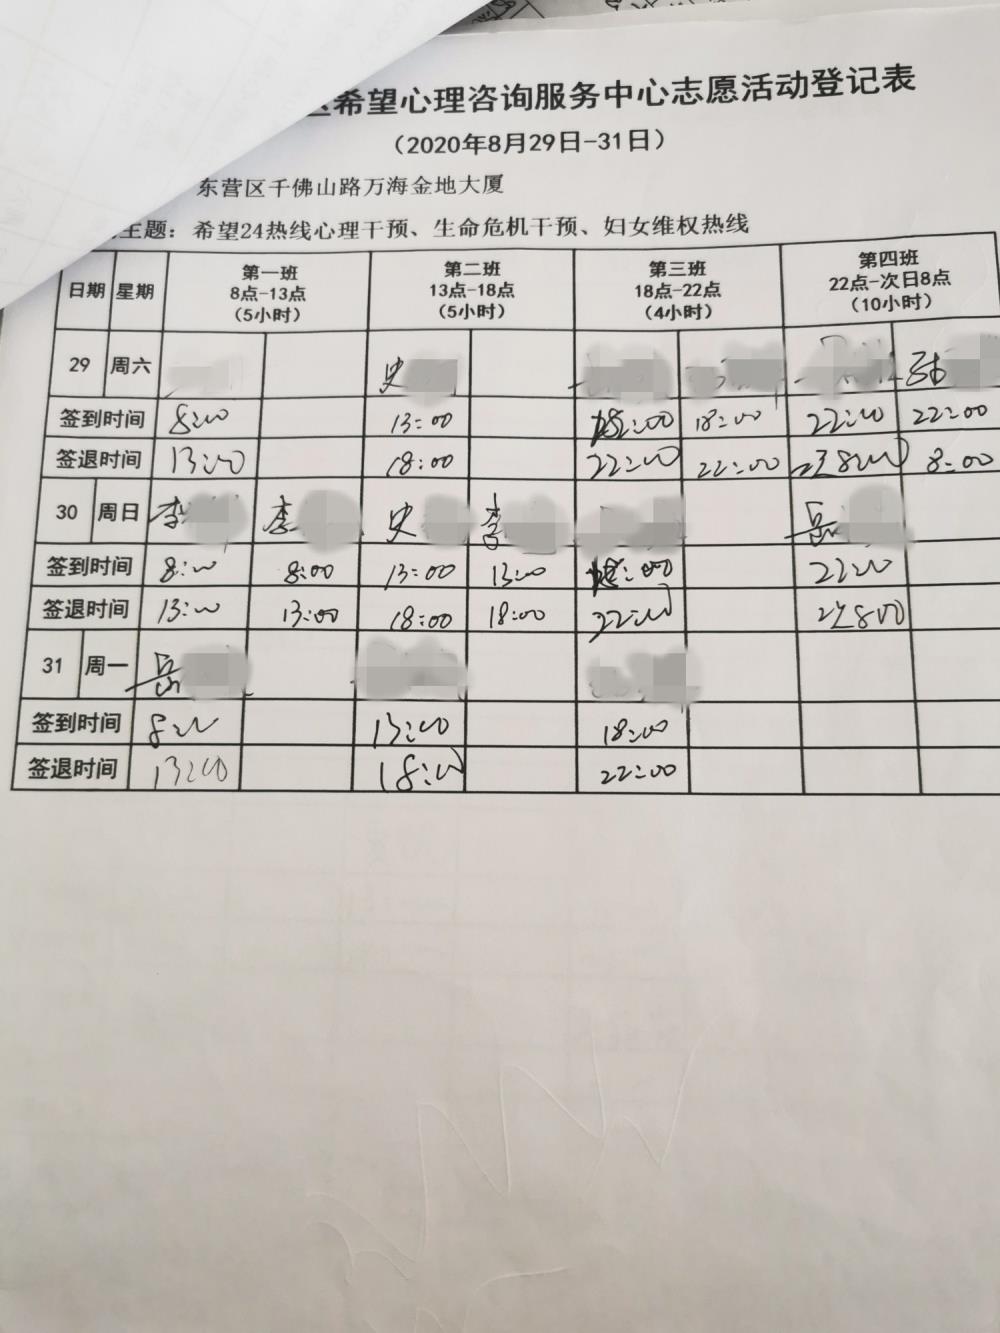 希望心理咨询服务中心志愿活动登记表
（2020年8月29日-31日）
东营区千佛山路万海金地大厦
主题：希望24热线心理干预、生命危机干预、妇女维权热线
日期 星期 第一班 8点-13点 （5小时） 第二班 13点-18点 （5小时） 第三班 18点-22点 （4小时） 第四班 22点-次日8点 （10小时）
29 周六 史
签到时间 8:00 13:00 18:00 18:00 22:00 22:00
签退时间 13:00 18:00 22:00 22:00 8:00 8:00
30 周日 李 李 史 李 岳
签到时间 8:00 8:00 13:00 13:00 18:00 22:00
签退时间 13:00 13:00 18:00 18:00 22:00 8:00
31 周一 岳
签到时间 8:00 13:00 18:00
签退时间 13:00 18:00 22:00